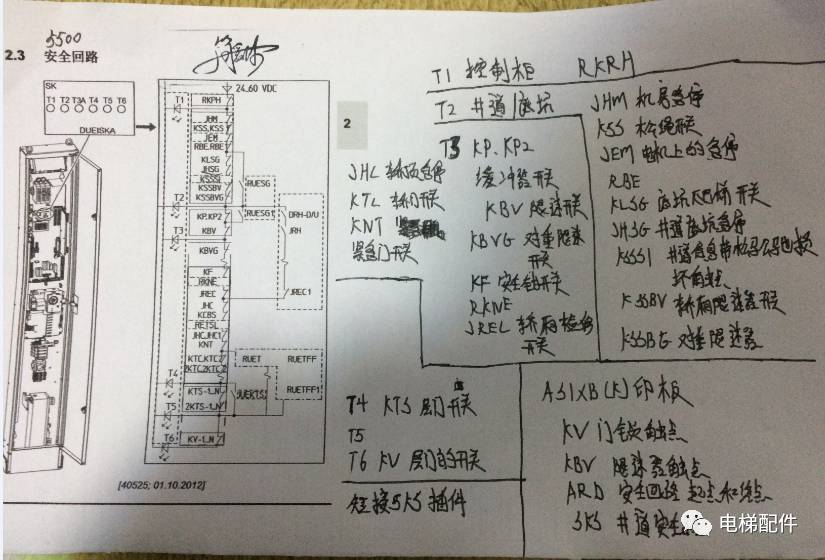 5500
2.3 安全回路
SK
T1 T2 T3A T4 T5 T6
DUEISKA
24..60 VDC
T1
RKPH
JHM
KSS,KSS1
JEM
RBE,RBE1
KLSG
JHSG
KSSSI
KSSBV
KSSBVG
T2
KP,KP2
T3
KBV
KBVG
KF
RKNE
JREC
JHC
KCBS
RETSL
JHC,JHC1
KNT
KTC,KTC2
2KTC,2KTC2
T4
KTS-1..N
T5
2KTS-1..N
T6
KV-1..N
RUESG
RUESG1
DRH-D/U
JRH
JREC1
RUET
RUETFF
RUETFF1
[40525; 01.10.2012]
2
T1 控制柜 RKRH
T2 井道/底坑
T3 KP.KP2
缓冲器开关
KBV 限速开关
KBVG 对重限速
开关
KF 安全钳开关
RKNE
JREL 轿厢检修
开关
JHL 轿顶急停
KTL 轿门开关
KNT
紧急门开关
JHM 机房急停
KSS 松绳开关
JEM 电机上的急停
RBE
KLSG 底坑爬梯开关
JHSG 井道底坑急停
KSSBV 轿厢限速器开关
KSSBG 对重限速器
T4 KTS 层门开关
T5
T6 KV 层门的开关
短接SKS插件
ASIXB(K)印板
KV 门锁触点
KBV 限速器触点
ARD 安全回路起点和终点
SKS 井道安全
电梯配件